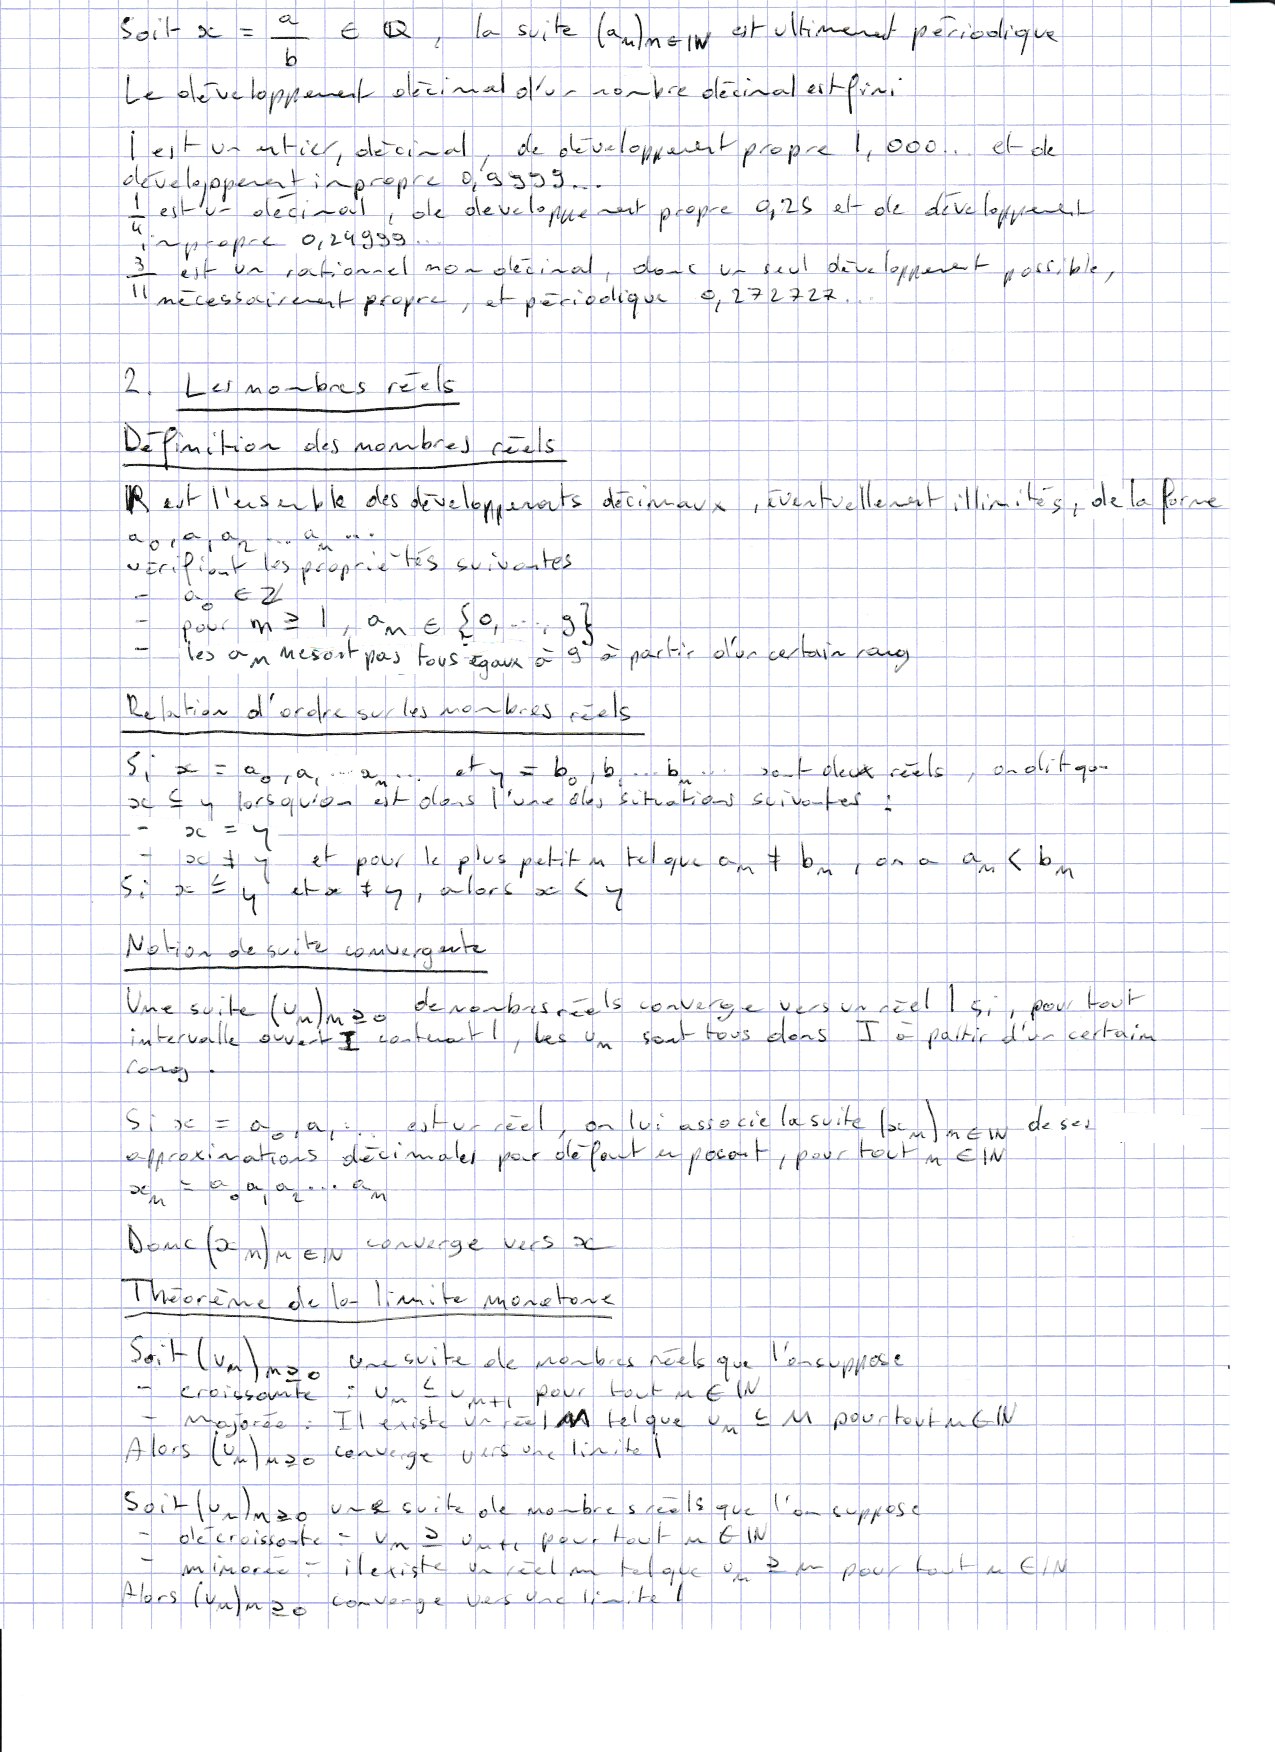 Soit x = a/b ∈ ℚ, la suite (a_n)_{n∈ℕ} est ultiment périodique
Le développement décimal d'un nombre décimal est fini
1 est un entier, décimal, de développement propre 1,000... et de
développement impropre 0,9999...
1/4 est un décimal, de developpement propre 0,25 et de développement
impropre 0,24999...
3/11 est un rationnel non décimal, donc un seul développement possible,
nécessairement propre, et périodique 0,272727...
2. Les nombres réels
Définition des nombres réels
ℝ est l'ensemble des développements décimaux, éventuellement illimités, de la forme
a_0,a_1a_2...a_n...
vérifiant les propriétés suivantes
- a_0 ∈ ℤ
- pour n ≥ 1, a_n ∈ {0,...,9}
- les a_n ne sont pas tous égaux à 9 à partir d'un certain rang
Relation d'ordre sur les nombres réels
Si x = a_0,a_1...a_n... et y = b_0,b_1...b_n... sont deux réels, on dit que
x ≤ y lorsqu'on est dans l'une des situations suivantes :
- x = y
- x ≠ y et pour le plus petit n tel que a_n ≠ b_n, on a a_n < b_n
Si x ≤ y et x ≠ y, alors x < y
Notion de suite convergente
Une suite (u_n)_{n≥0} de nombres réels converge vers un réel l si, pour tout
intervalle ouvert I contenant l, les u_n sont tous dans I à partir d'un certain
rang.
Si x = a_0,a_1... est un réel, on lui associe la suite (x_n)_{n∈ℕ} de ses
approximations décimales par défaut en posant, pour tout n ∈ ℕ
x_n = a_0,a_1a_2...a_n
Donc (x_n)_{n∈ℕ} converge vers x
Théorème de la limite monotone
Soit (u_n)_{n≥0} une suite de nombres réels que l'on suppose
- croissante : u_n ≤ u_{n+1} pour tout n ∈ ℕ
- majorée : Il existe un réel M tel que u_n ≤ M pour tout n ∈ ℕ
Alors (u_n)_{n≥0} converge vers une limite l
Soit (u_n)_{n≥0} une suite de nombres réels que l'on suppose
- décroissante : u_n ≥ u_{n+1} pour tout n ∈ ℕ
- minorée : il existe un réel m tel que u_n ≥ m pour tout n ∈ ℕ
Alors (u_n)_{n≥0} converge vers une limite l